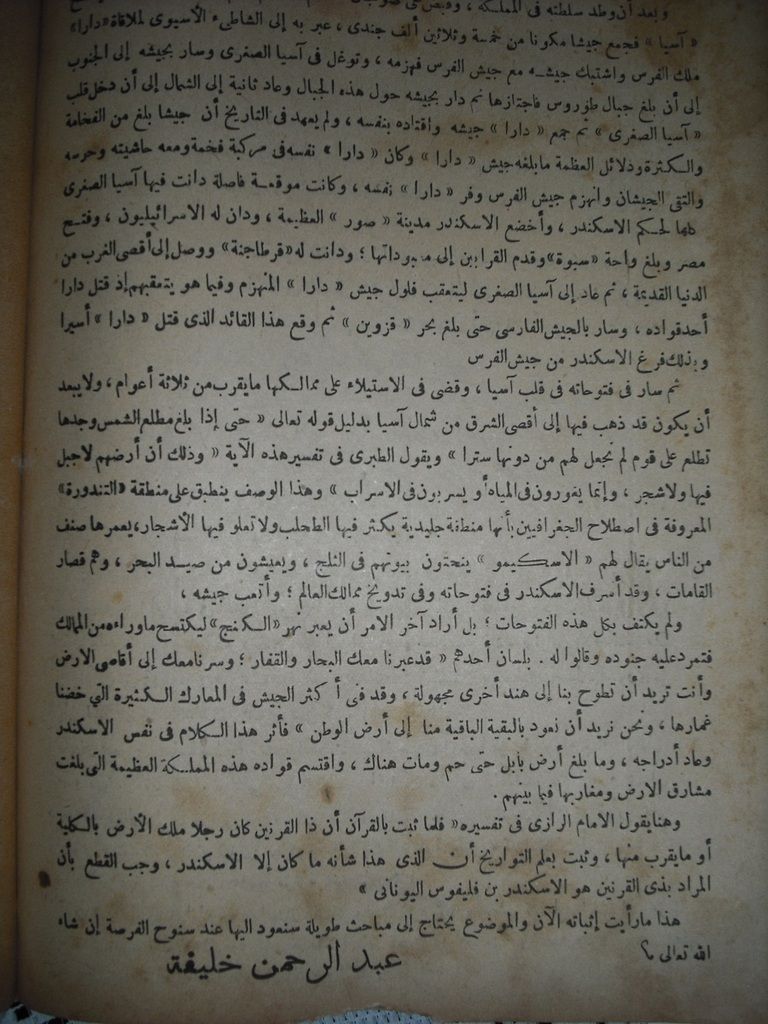 وبعد أن وطد سلطته فى المملكة ، وقبض
« آسيا » فجمع جيشا مكونا من خمسة وثلاثين ألف جندى ، عبر به إلى الشاطىء الأسيوى لملاقاة « دارا »
ملك الفرس واشتبك جيشه مع جيش الفرس فهزمه ، وتوغل فى آسيا الصغرى وسار بجيشه إلى الجنوب
إلى أن بلغ جبال طوروس فاجتازها ثم دار بجيشه حول هذه الجبال وعاد ثانية إلى الشمال إلى أن دخل قلب
« آسيا الصغرى » ثم جمع « دارا » جيشه واقتاده بنفسه ، ولم يعهد فى التاريخ أن جيشا بلغ من الفخامة
والكثرة ودلائل العظمة ما بلغه جيش « دارا » وكان « دارا » نفسه فى مركبة فخمة ومعه حاشيته وحرسه
والتقى الجيشان وانهزم جيش الفرس وفر « دارا » نفسه ، وكانت موقعة فاصلة دانت فيها آسيا الصغرى
كلها لحكم الاسكندر ، وأخضع الاسكندر مدينة « صور » العظيمة ، ودان له الاسرائيليون ، وفتح
مصر وبلغ واحة «سيوة» وقدم القرابين إلى معبوداتها ؛ ودانت له «قرطاجنة» ووصل إلى أقصى الغرب من
الدنيا القديمة ، ثم عاد إلى آسيا الصغرى ليتعقب فلول جيش « دارا » المنهزم وفيما هو يتعقبهم إذ قتل دارا
أحد قواده ، وسار بالجيش الفارسى حتى بلغ بحر « قزوين » ثم وقع هذا القائد الذى قتل « دارا » أسيرا
وبذلك فرغ الاسكندر من جيش الفرس
ثم سار فى فتوحاته فى قلب آسيا ، وقضى فى الاستيلاء على ممالكها ما يقرب من ثلاثة أعوام ، ولا يبعد
أن يكون قد ذهب فيها إلى أقصى الشرق من شمال آسيا بدليل قوله تعالى « حتى إذا بلغ مطلع الشمس وجدها
تطلع على قوم لم نجعل لهم من دونها سترا » ويقول الطبرى فى تفسير هذه الآية « وذلك أن أرضهم لا جبل
فيها ولا شجر ، وإنما يغورون فى المياه أو يسربون فى الاسراب » وهذا الوصف ينطبق على منطقة «التندورة»
المعروفة فى اصطلاح الجغرافيين بأنها منطقة جليدية يكثر فيها الطحلب ولا تعلو فيها الأشجار، يعمرها صنف
من الناس يقال لهم « الاسكيمو » ينحتون بيوتهم فى الثلج ، ويعيشون من صيد البحر ، وهم قصار
القامات ، وقد أسرف الاسكندر فى فتوحاته وفى تدويخ ممالك العالم ؛ وأتعب جيشه ،
ولم يكتف بكل هذه الفتوحات ؛ بل أراد آخر الامر أن يعبر نهر «الكنج» ليكتسح ماوراءه من الممالك
فتمرد عليه جنوده وقالوا له . بلسان أحدهم « قد عبرنا معك البحار والقفار ؛ وسرنا معك إلى أقاصى الارض
وأنت تريد أن تطوح بنا إلى هند أخرى مجهولة ، وقد فى أكثر الجيش فى المعارك الكثيرة التى خضنا
غمارها ، ونحن نريد أن نعود بالبقية الباقية منا إلى أرض الوطن » فأثر هذا الكلام فى نفس الاسكندر
وعاد أدراجه ، وما بلغ أرض بابل حتى حم ومات هناك ، واقتسم قواده هذه المملكة العظيمة التى بلغت
مشارق الارض ومغاربها فيما بينهم .
وهنا يقول الامام الرازى فى تفسيره « فلما ثبت بالقرآن أن ذا القرنين كان رجلا ملك الأرض بالكلية
أو ما يقرب منها ، وثبت بعلم التواريخ أن الذى هذا شأنه ما كان إلا الاسكندر ، وجب القطع بأن
المراد بذى القرنين هو الاسكندر بن فليفوس اليونانى »
هذا ما رأيت إثباته الآن والموضوع يحتاج إلى مباحث طويلة سنعود اليها عند سنوح الفرصة إن شاء
الله تعالى م؟
عبد الرحمن خليفة